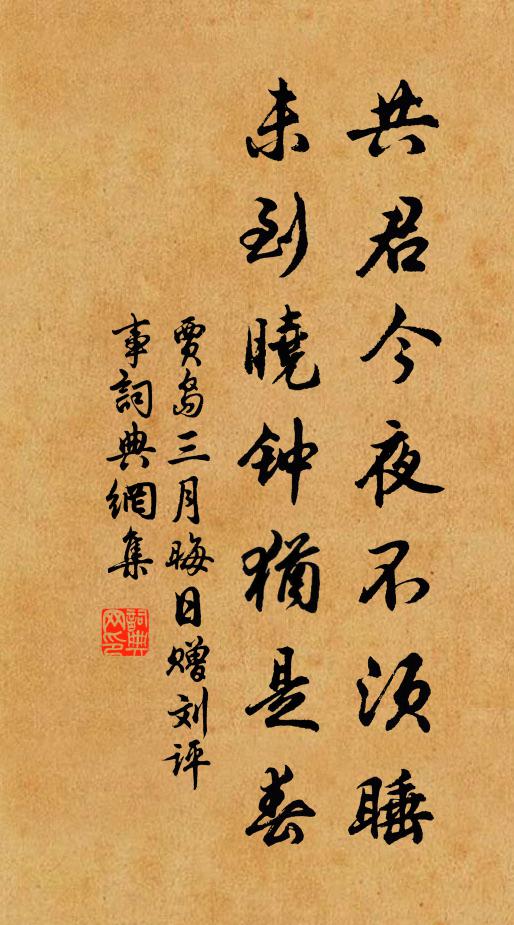 共君今夜不须睡
未到曉钟猶是春
賈島三月晦日赠刘评
事詞典網集
詞典
网印